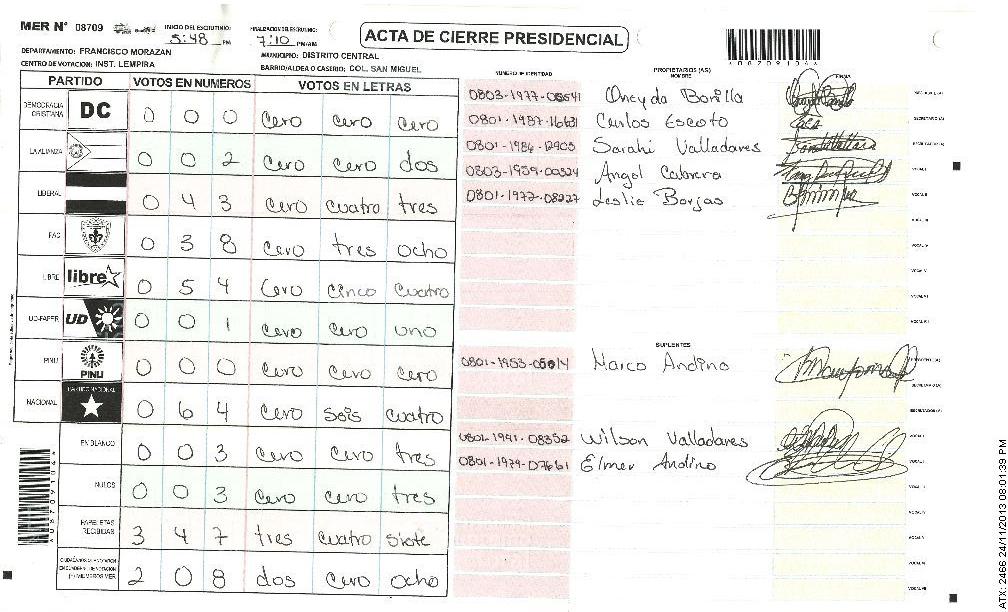 MER N° 08709
INICIO DEL ESCRUTINIO:
5:48 PM
FINALIZACION DEL ESCRUTINIO:
7:10 PM/AM
ACTA DE CIERRE PRESIDENCIAL
*00709104*
DEPARTAMENTO: FRANCISCO MORAZAN
MUNICIPIO: DISTRITO CENTRAL
CENTRO DE VOTACION: INST. LEMPIRA
BARRIO/ALDEA O CASERIO: COL. SAN MIGUEL
PARTIDO VOTOS EN NUMEROS VOTOS EN LETRAS
DEMOCRACIA CRISTIANA DC 0 0 0 cero cero cero
LA ALIANZA 0 0 2 cero cero dos
LIBERAL 0 4 3 cero cuatro tres
PAC 0 3 8 cero tres ocho
LIBRE libre 0 5 4 cero cinco cuatro
UD-FAPER UD 0 0 1 cero cero uno
PINU PINU 0 0 0 cero cero cero
NACIONAL PARTIDO NACIONAL 0 6 4 cero seis cuatro
EN BLANCO 0 0 3 cero cero tres
NULOS 0 0 3 cero cero tres
PAPELETAS RECIBIDAS 3 4 7 tres cuatro siete
2 0 8 dos cero ocho
(+) MIEMBROS MER
NUMERO DE IDENTIDAD
PROPIETARIOS (AS)
NOMBRE
FIRMA
Oneyda Bonilla
0801-1987-16631 Carlos Escoto
0801-1986-12905 Sarahi Valladares
0803-1959-00324 Angel Cabrera
0801-1977-08227 Leslie Borjas
SUPLENTES
Marco Andino
0801-1941-08352 Wilson Valladares
0801-1979-07661 Elmer Andino
ATX: 2466 24/11/2013 08:01:39 PM